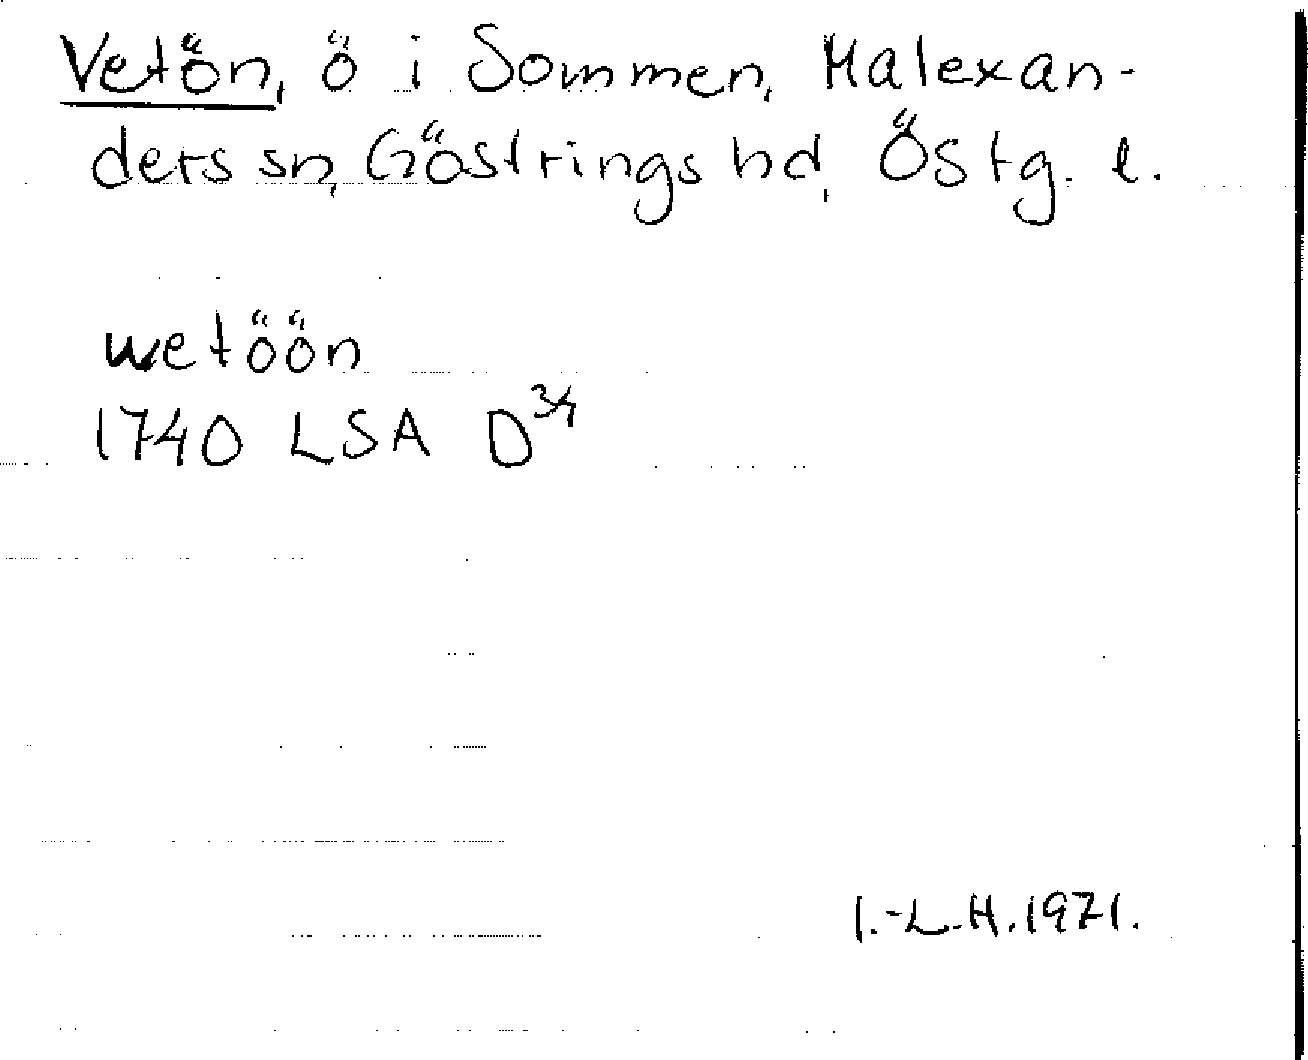 Vetön, ö i Sommen, Malexan-
ders sn, Göstrings hd, Östg. l.
wetöön
1740 LSA D 3/1
I.-L.H.1971.